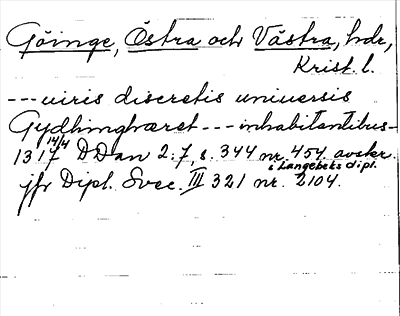 Göinge, Östra och Västra, hdr,
Krist. l.
--- uiris discretis uniuersis
Gydhinghæret --- inhabitantibus -
1317 14/4 DDan 2:7, s. 344 nr. 454 avskr.
i Langebeks dipl.
jfr Dipl. Svec. III 321 nr. 2104.